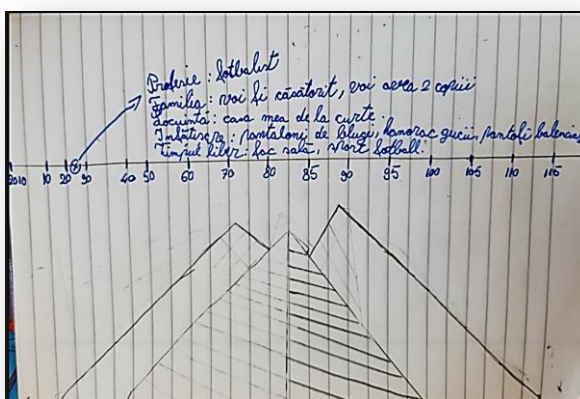 Profesie: fotbalist
Familia: voi fi căsătorit, voi avea 2 copii
Locuința: casa mea de la curte.
Îmbătiseea: pantaloni de blugi, hanorac gucii, pantofi balencia
Timpul liber: fac sală, sport fotball.
2010 10 20 30 40 50 60 70 80 85 90 95 100 105 110 115